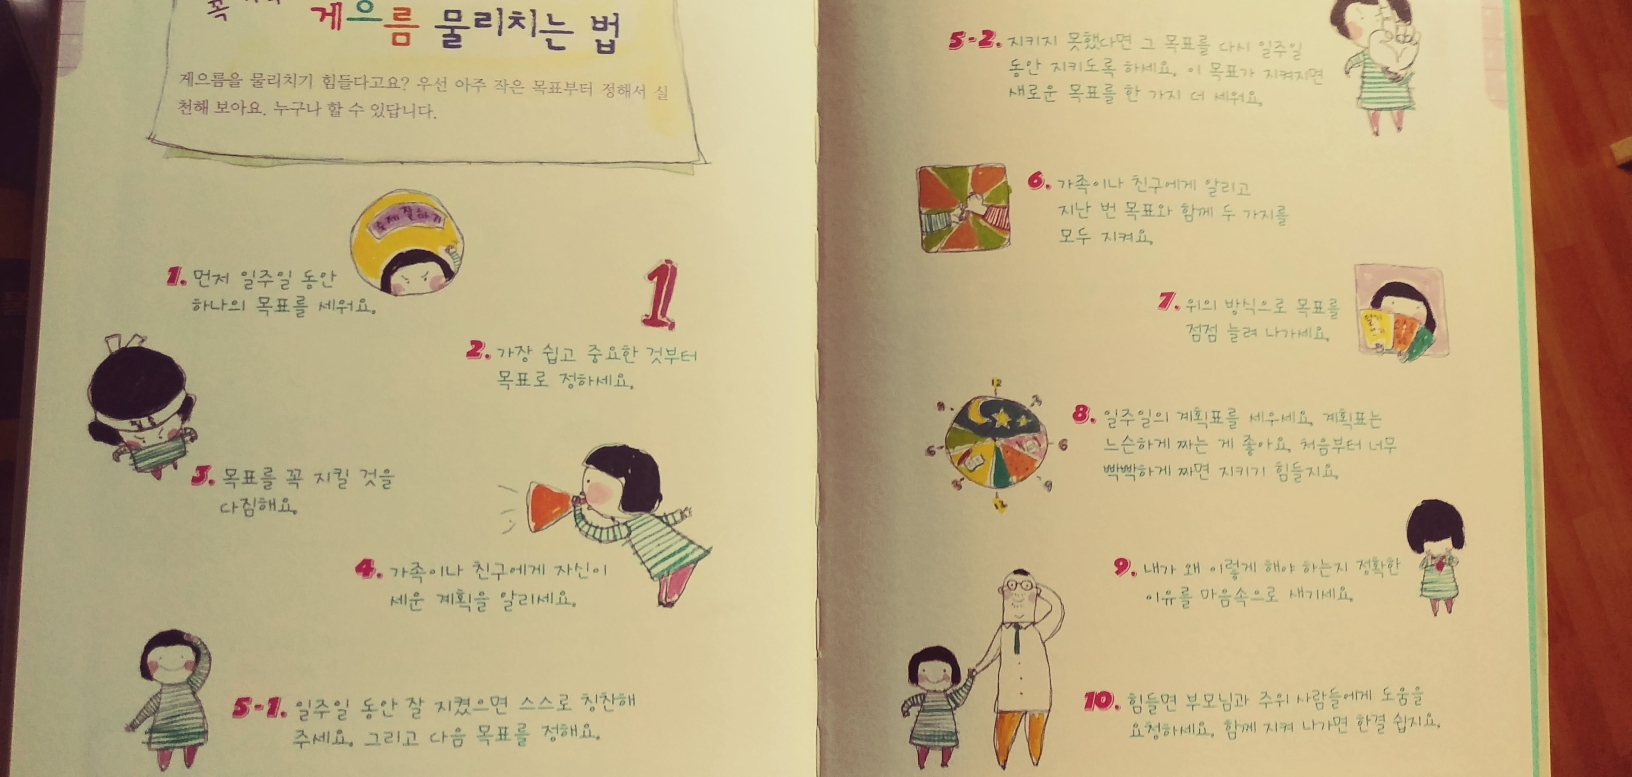 꼭
게으름 물리치는 법
게으름을 물리치기 힘들다고요? 우선 아주 작은 목표부터 정해서 실
천해 보아요. 누구나 할 수 있답니다.
숙제 잘하기
1. 먼저 일주일 동안
하나의 목표를 세워요.
1
2. 가장 쉽고 중요한 것부터
목표로 정하세요.
3. 목표를 꼭 지킬 것을
다짐해요.
4. 가족이나 친구에게 자신이
세운 계획을 알리세요.
5-1. 일주일 동안 잘 지켰으면 스스로 칭찬해
주세요. 그리고 다음 목표를 정해요.
5-2. 지키지 못했다면 그 목표를 다시 일주일
동안 지키도록 하세요. 이 목표가 지켜지면
새로운 목표를 한 가지 더 세워요.
6. 가족이나 친구에게 알리고
지난 번 목표와 함께 두 가지를
모두 지켜요.
7. 위의 방식으로 목표를
점점 늘려 나가세요.
12
6
6
9
12
8. 일주일의 계획표를 세우세요. 계획표는
느슨하게 짜는 게 좋아요. 처음부터 너무
빡빡하게 짜면 지키기 힘들지요.
9. 내가 왜 이렇게 해야 하는지 정확한
이유를 마음속으로 새기세요.
10. 힘들면 부모님과 주위 사람들에게 도움을
요청하세요. 함께 지켜 나가면 한결 쉽지요.